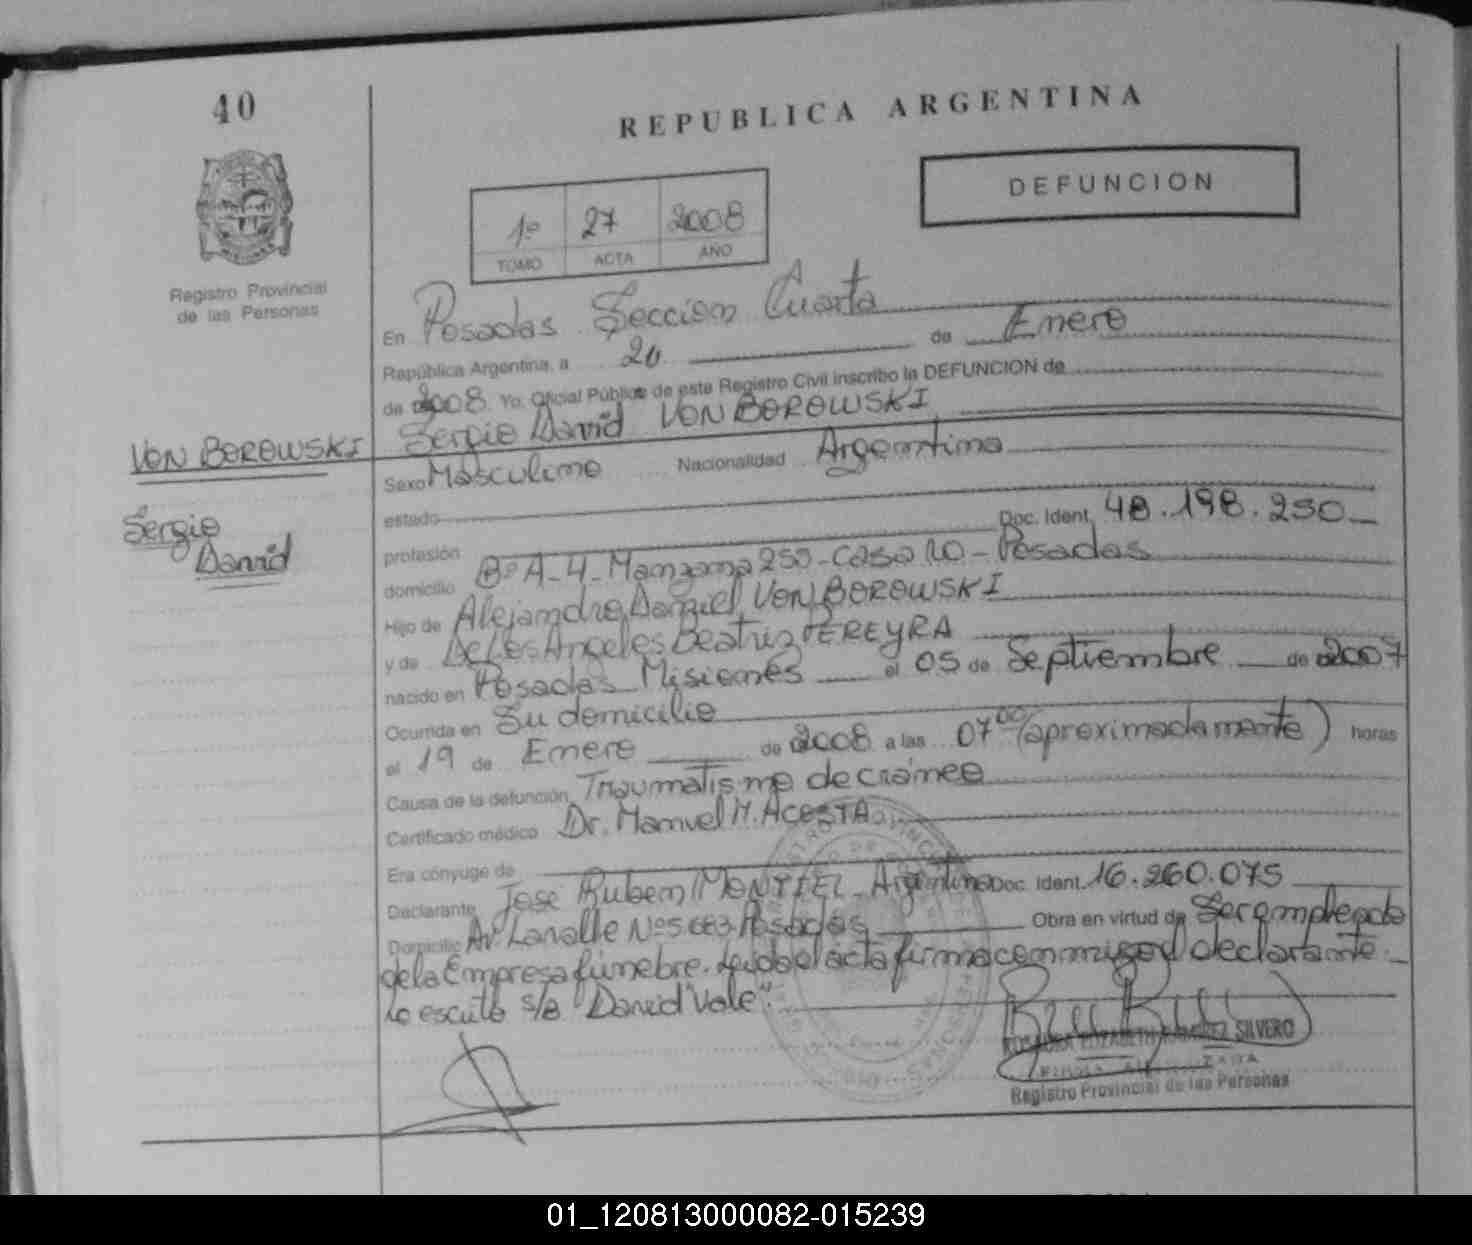 40
REPUBLICA ARGENTINA
DEFUNCION
1º 27 2008
TOMO ACTA AÑO
Registro Provincial
de las Personas
En Posadas Seccion Cuarta
República Argentina, a 20 de Enero
de 2008. Yo, Oficial Público de este Registro Civil inscribo la DEFUNCION de
Sergio David VON BOROWSKI
VON BOROWSKI
Sergio
David
Sexo Masculino Nacionalidad Argentina
estado
profesión Doc. Ident. 48.198.250
domicilio Bº A-4- Manzana 255- Casa 10- Posadas
Hijo de Alejandro Daniel VON BOROWSKI
y de De Los Angeles Beatriz PEREYRA
nacido en Posadas Misiones el 05 de Septiembre de 2007
Ocurrida en Su domicilio
el 19 de Enero de 2008 a las 07 00 (aproximadamente) horas
Causa de la defunción Traumatismo de craneo
Certificado médico Dr. Manuel M. ACOSTA
Era cónyuge de
Declarante Jose Ruben MONTIEL Argentino Doc. Ident. 16.260.075
Domicilio Av. Lavalle Nº 5663 Posadas Obra en virtud de Ser empleado
de la Empresa fúnebre. Leida el acta firma conmigo el declarante.
lo escrito s/b "David" Vale".
SILVERO
Registro Provincial de las Personas
01_120813000082-015239